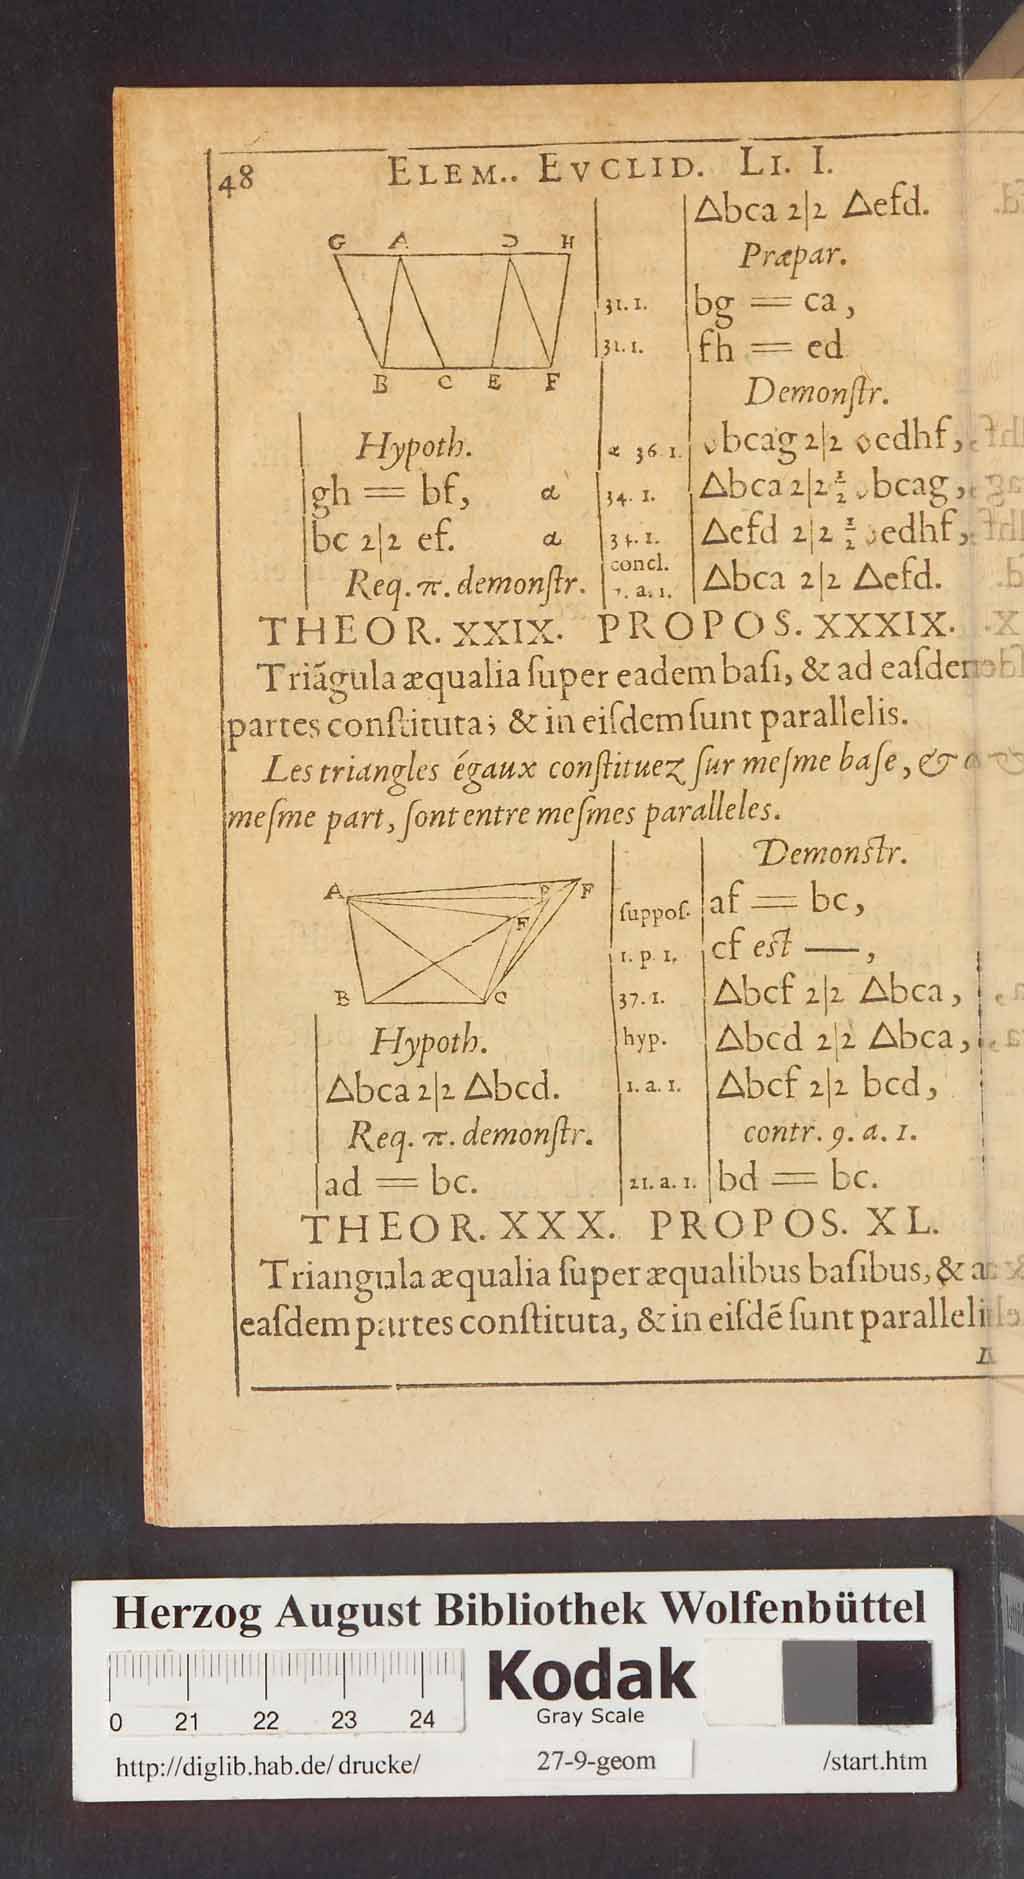 48 ELEM.. EVCLID. LI. I.
△bca 2|2 △efd.
Præpar.
31. 1. bg = ca,
31. 1. fh = ed
G A D H
B C E F
Demonſtr.
Hypoth.
gh = bf, α
bc 2|2 ef. α
Req. π. demonſtr.
α 36. 1. bcag 2|2 edhf,
34. 1. △bca 2|2 ½ bcag,
34. 1. △efd 2|2 ½ edhf,
concl. △bca 2|2 △efd.
7. a. 1.
THEOR. XXIX. PROPOS. XXXIX.
Triãgula æqualia ſuper eadem baſi, & ad eaſdem
partes conſtituta; & in eiſdem ſunt parallelis.
Les triangles égaux conſtituez ſur meſme baſe, &
meſme part, ſont entre meſmes paralleles.
A D F
E
B C
Hypoth.
△bca 2|2 △bcd.
Req. π. demonſtr.
ad = bc.
Demonſtr.
ſuppoſ. af = bc,
1. p. 1. cf eſt —,
37. 1. △bcf 2|2 △bca,
hyp. △bcd 2|2 △bca,
1. a. 1. △bcf 2|2 bcd,
contr. 9. a. 1.
21. a. 1. bd = bc.
THEOR. XXX. PROPOS. XL.
Triangula æqualia ſuper æqualibus baſibus, &
eaſdem partes conſtituta, & in eiſdẽ ſunt paralleli
Herzog August Bibliothek Wolfenbüttel
0 21 22 23 24
Kodak
Gray Scale
http://diglib.hab.de/drucke/ 27-9-geom /start.htm